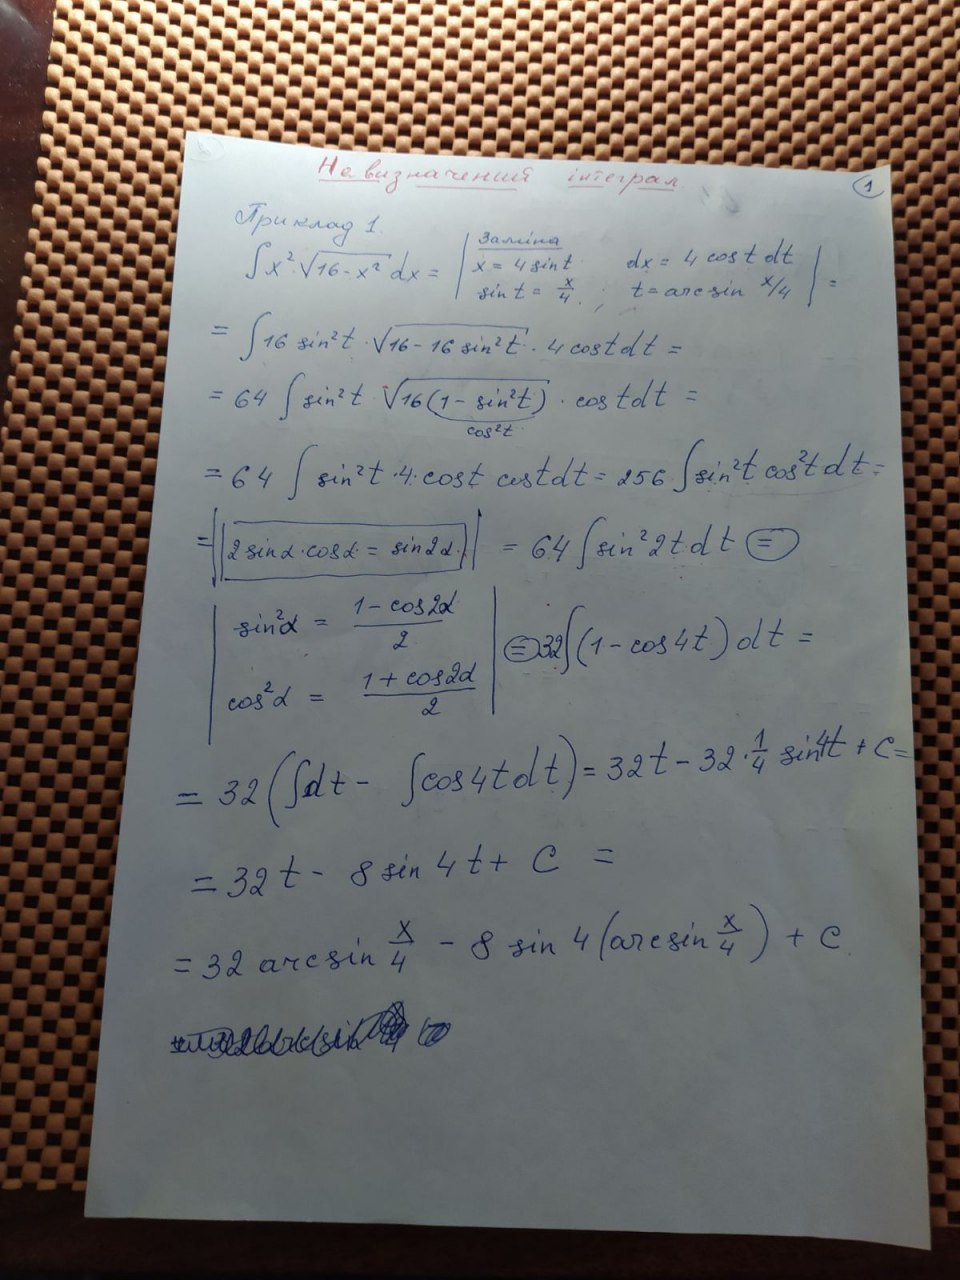 Невизначений інтеграл.
1
Приклад 1.
∫x²·√(16-x²) dx = | Заміна
x = 4 sin t dx = 4 cos t dt
sin t = x/4 ; t = arcsin x/4 | =
= ∫16 sin²t · √(16-16 sin²t) · 4 cos t dt =
= 64 ∫ sin²t · √(16(1-sin²t)) · cos t dt =
cos²t
= 64 ∫ sin²t · 4 · cos t cos t dt = 256 ∫ sin²t cos²t dt =
= || 2 sin α · cos α = sin 2α | = 64 ∫ sin²2t dt =
| sin²α = (1 - cos2α)/2
= 32∫(1 - cos 4t) dt =
cos²α = (1 + cos2α)/2 |
= 32 (∫dt - ∫cos 4t dt) = 32t - 32·1/4 sin 4t + C =
= 32t - 8 sin 4t + C =
= 32 arcsin x/4 - 8 sin 4(arcsin x/4) + C